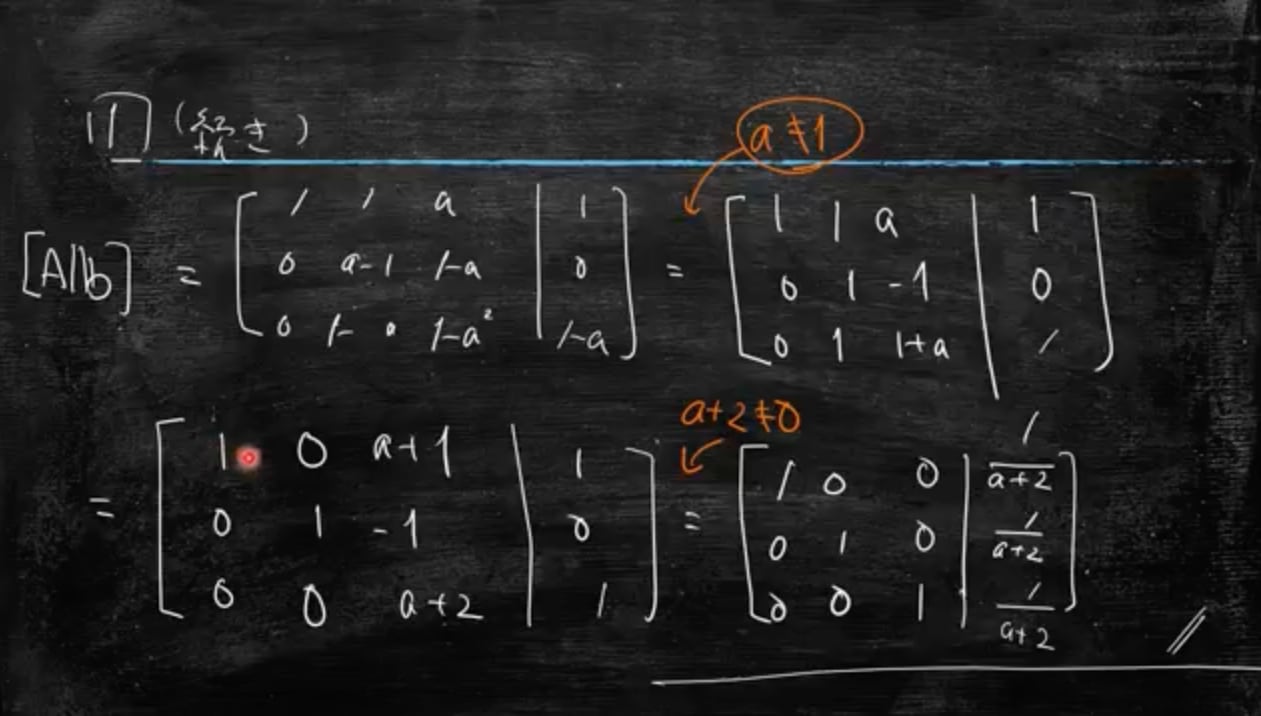 11 (続き)
a ≠ 1
[A|b] = [ 1 1 a | 1 ; 0 a-1 1-a | 0 ; 0 1-a 1-a² | 1-a ] = [ 1 1 a | 1 ; 0 1 -1 | 0 ; 0 1 1+a | 1 ]
a+2 ≠ 0
= [ 1 0 a+1 | 1 ; 0 1 -1 | 0 ; 0 0 a+2 | 1 ] = [ 1 0 0 | 1/(a+2) ; 0 1 0 | 1/(a+2) ; 0 0 1 | 1/(a+2) ]